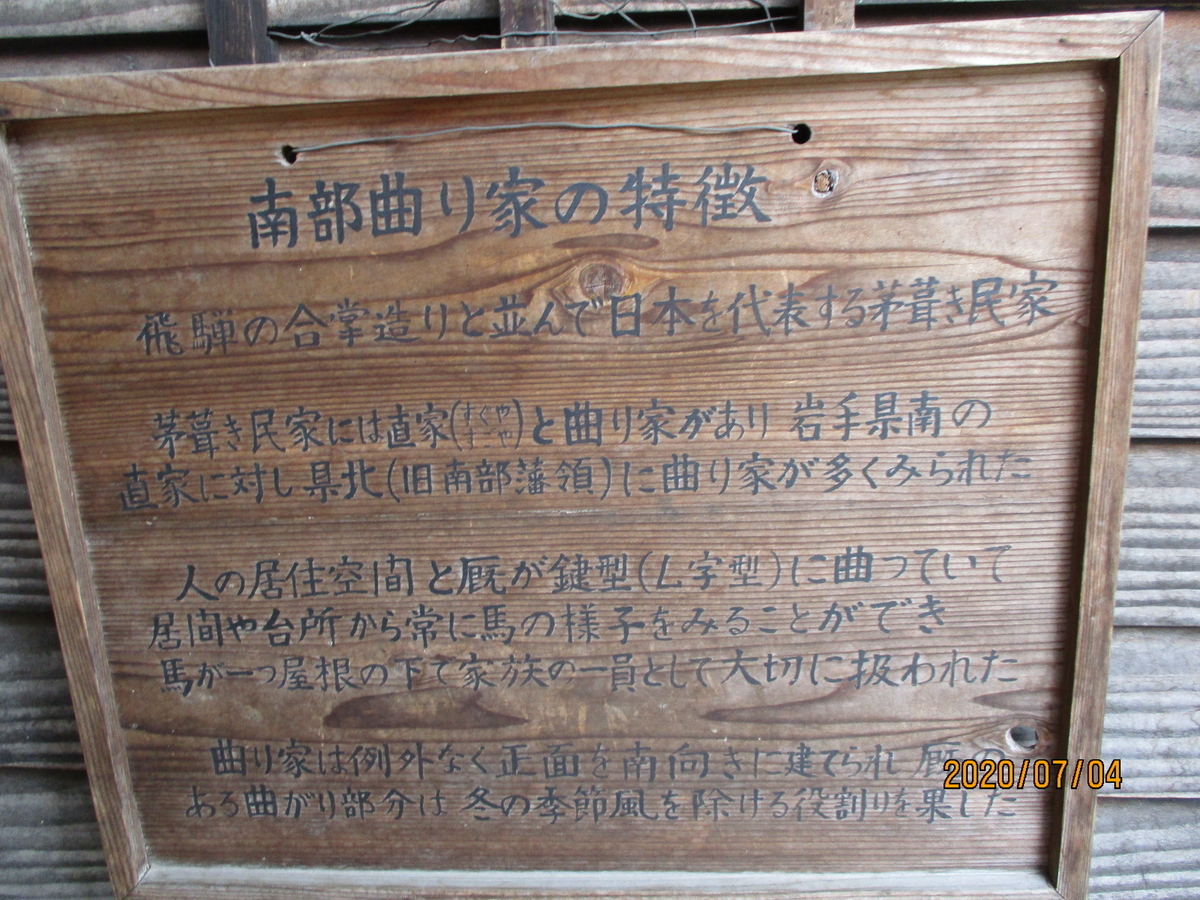 南部曲り家の特徴
飛騨の合掌造りと並んで日本を代表する茅葺き民家
茅葺き民家には直家(すぐや すごや)と曲り家があり 岩手県南の
直家に対し県北(旧南部藩領)に曲り家が多くみられた
人の居住空間と厩が鍵型(L字型)に曲っていて
居間や台所から常に馬の様子をみることができ
馬が一つ屋根の下で家族の一員として大切に扱われた
曲り家は例外なく正面を南向きに建てられ 厩の
ある曲がり部分は 冬の季節風を除ける役割りを果した
2020/07/04